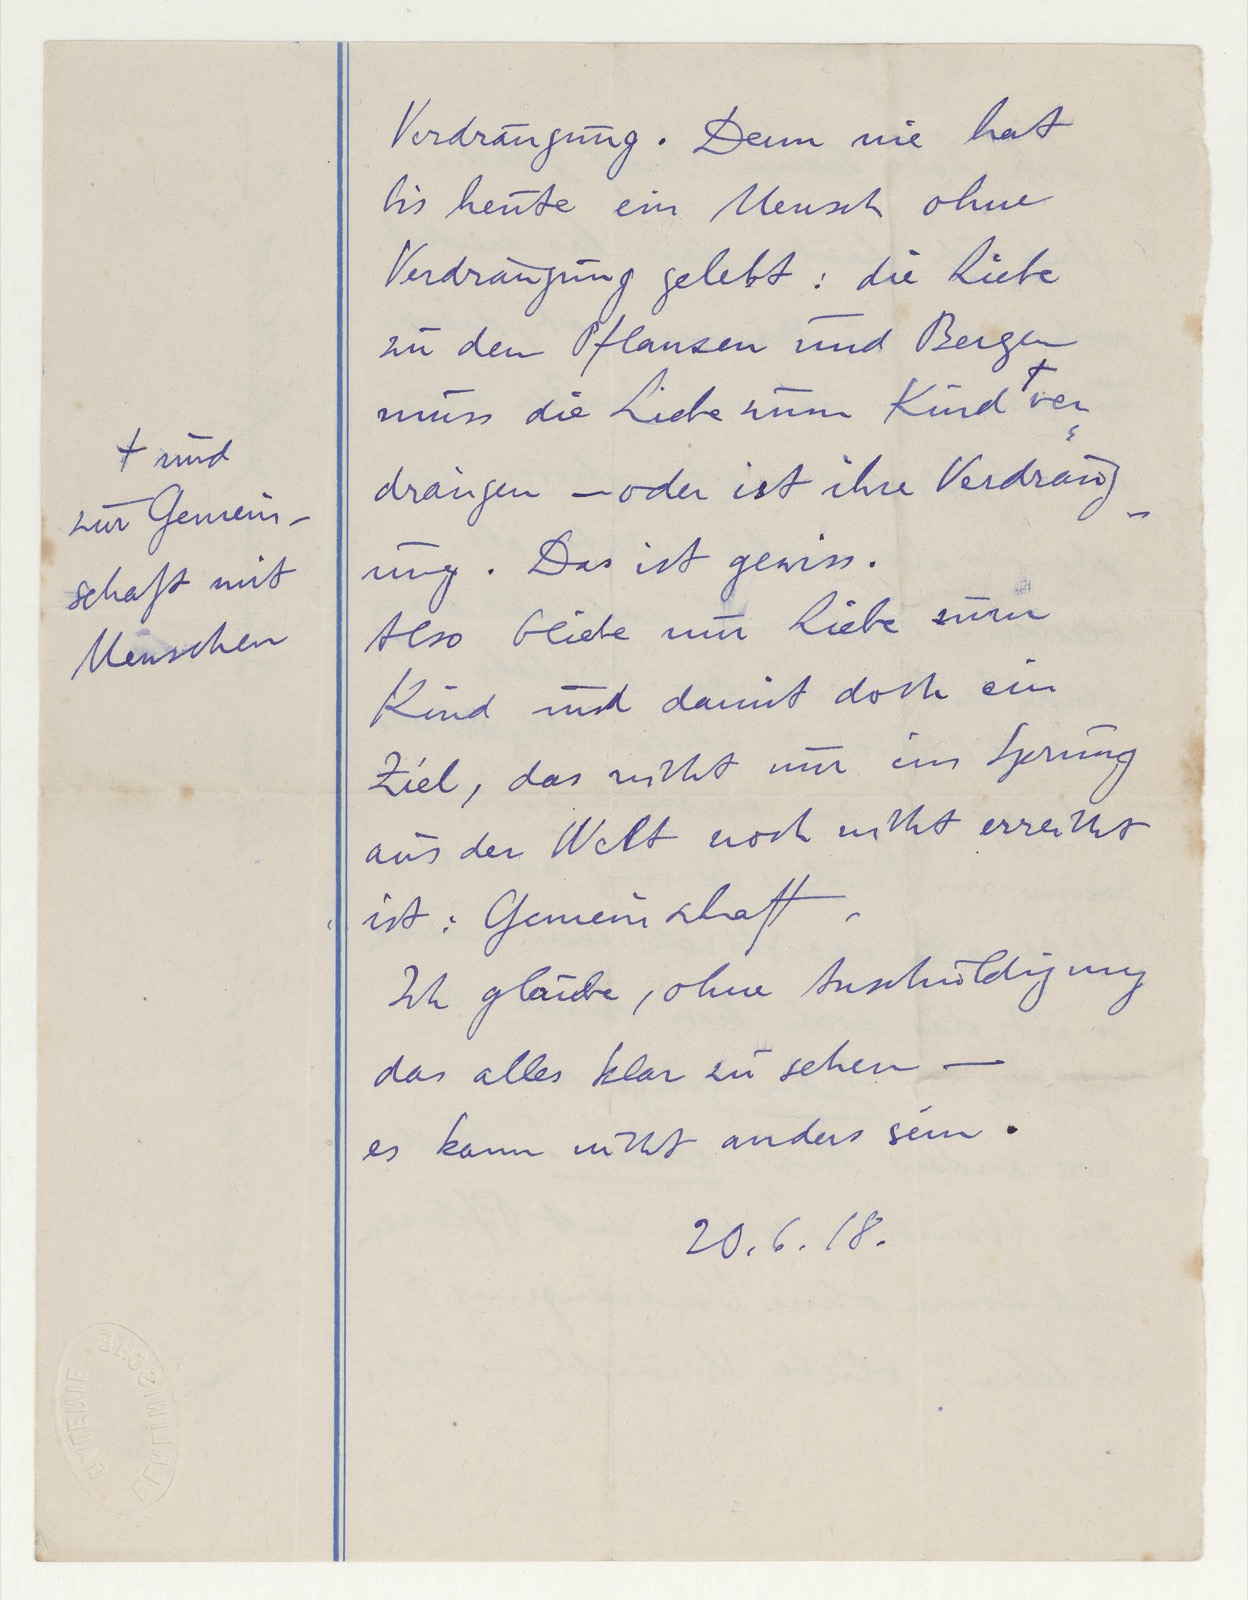 Verdrängung. Denn nie hat
bis heute ein Mensch ohne
Verdrängung gelebt: die Liebe
zu den Pflanzen und Bergen
muss die Liebe zum Kind † ver
drängen — oder ist ihre Verdräng
ung. Das ist gewiss.
Also bliebe nur Liebe zum
Kind und damit doch ein
Ziel, das nicht nur im Sprung
aus der Welt noch nicht erreicht
ist: Gemeinschaft.
Ich glaube, ohne Anschuldigung
das alles klar zu sehen —
es kann nicht anders sein.
20.6.18.
† und
zur Gemein-
schaft mit
Menschen